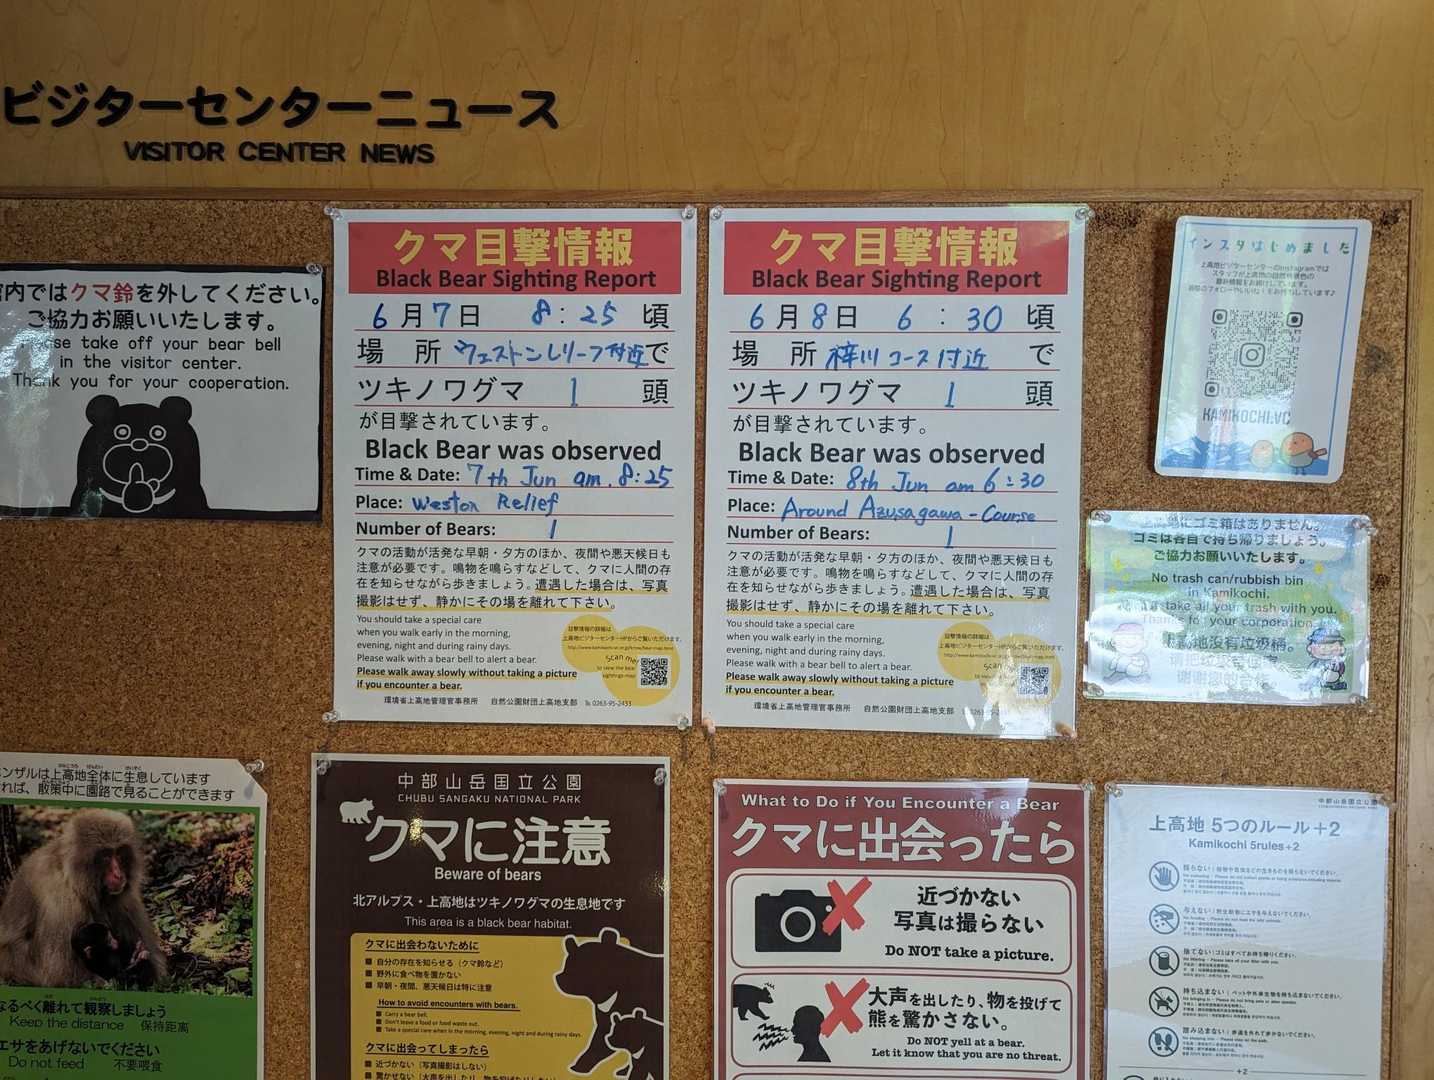 ビジターセンターニュース
VISITOR CENTER NEWS
館内ではクマ鈴を外してください。
ご協力お願いいたします。
Please take off your bear bell
in the visitor center.
Thank you for your cooperation.
クマ目撃情報
Black Bear Sighting Report
6月7日 8:25頃
場所 ウェストンレリーフ付近で
ツキノワグマ 1 頭
が目撃されています。
Black Bear was observed
Time & Date: 7th Jun am. 8:25
Place: Weston Relief
Number of Bears: 1
クマの活動が活発な早朝・夕方のほか、夜間や悪天候日も
注意が必要です。鳴物を鳴らすなどして、クマに人間の存
在を知らせながら歩きましょう。遭遇した場合は、写真
撮影はせず、静かにその場を離れて下さい。
You should take a special care
when you walk early in the morning,
evening, night and during rainy days.
Please walk with a bear bell to alert a bear.
Please walk away slowly without taking a picture
if you encounter a bear.
目撃情報の詳細は
上高地ビジターセンターHPからご覧いただけます。
Scan me!
to view the bear
sightings map
環境省上高地管理官事務所 自然公園財団上高地支部 ℡ 0263-95-2433
クマ目撃情報
Black Bear Sighting Report
6月8日 6:30頃
場所 梓川コース付近 で
ツキノワグマ 1 頭
が目撃されています。
Black Bear was observed
Time & Date: 8th Jun am 6:30
Place: Around Azusagawa-Course
Number of Bears: 1
クマの活動が活発な早朝・夕方のほか、夜間や悪天候日も
注意が必要です。鳴物を鳴らすなどして、クマに人間の存
在を知らせながら歩きましょう。遭遇した場合は、写真
撮影はせず、静かにその場を離れて下さい。
You should take a special care
when you walk early in the morning,
evening, night and during rainy days.
Please walk with a bear bell to alert a bear.
Please walk away slowly without taking a picture
if you encounter a bear.
目撃情報の詳細は
上高地ビジターセンターHPからご覧いただけます。
Scan me!
環境省上高地管理官事務所 自然公園財団上高地支部 ℡ 0263-95-2433
インスタはじめました
上高地ビジターセンターのInstagramでは
スタッフが上高地の自然や景色の
最新情報をお届けしています。
KAMIKOCHI.VC
上高地にゴミ箱はありません。
ゴミは各自で持ち帰りましょう。
ご協力お願いいたします。
No trash can/rubbish bin
in Kamikochi.
take all your trash with you.
Thanks for your corporation.
上高地没有垃圾桶。
ンザルは上高地全体に生息しています
れば、散策中に園路で見ることができます
なるべく離れて観察しましょう
Keep the distance 保持距离
エサをあげないでください
Do not feed 不要喂食
中部山岳国立公園
CHUBU SANGAKU NATIONAL PARK
クマに注意
Beware of bears
北アルプス・上高地はツキノワグマの生息地です
This area is a black bear habitat.
クマに出会わないために
■ 自分の存在を知らせる（クマ鈴など）
■ 野外に食べ物を置かない
■ 早朝・夜間、悪天候日は特に注意
How to avoid encounters with bears.
■ Carry a bear bell.
■ Don't leave a food or food waste out.
■ Take a special care when in the morning, evening, night and during rainy days.
クマに出会ってしまったら
■ 近づかない（写真撮影はしない）
■ 驚かせない（大声を出したり、物を投げたりしない）
What to Do if You Encounter a Bear
クマに出会ったら
近づかない
写真は撮らない
Do NOT take a picture.
大声を出したり、物を投げて
熊を驚かさない。
Do NOT yell at a bear.
Let it know that you are no threat.
中部山岳国立公園
上高地 5つのルール+2
Kamikochi 5rules+2
採らない
与えない
捨てない
持ち込まない
踏み込まない
+2